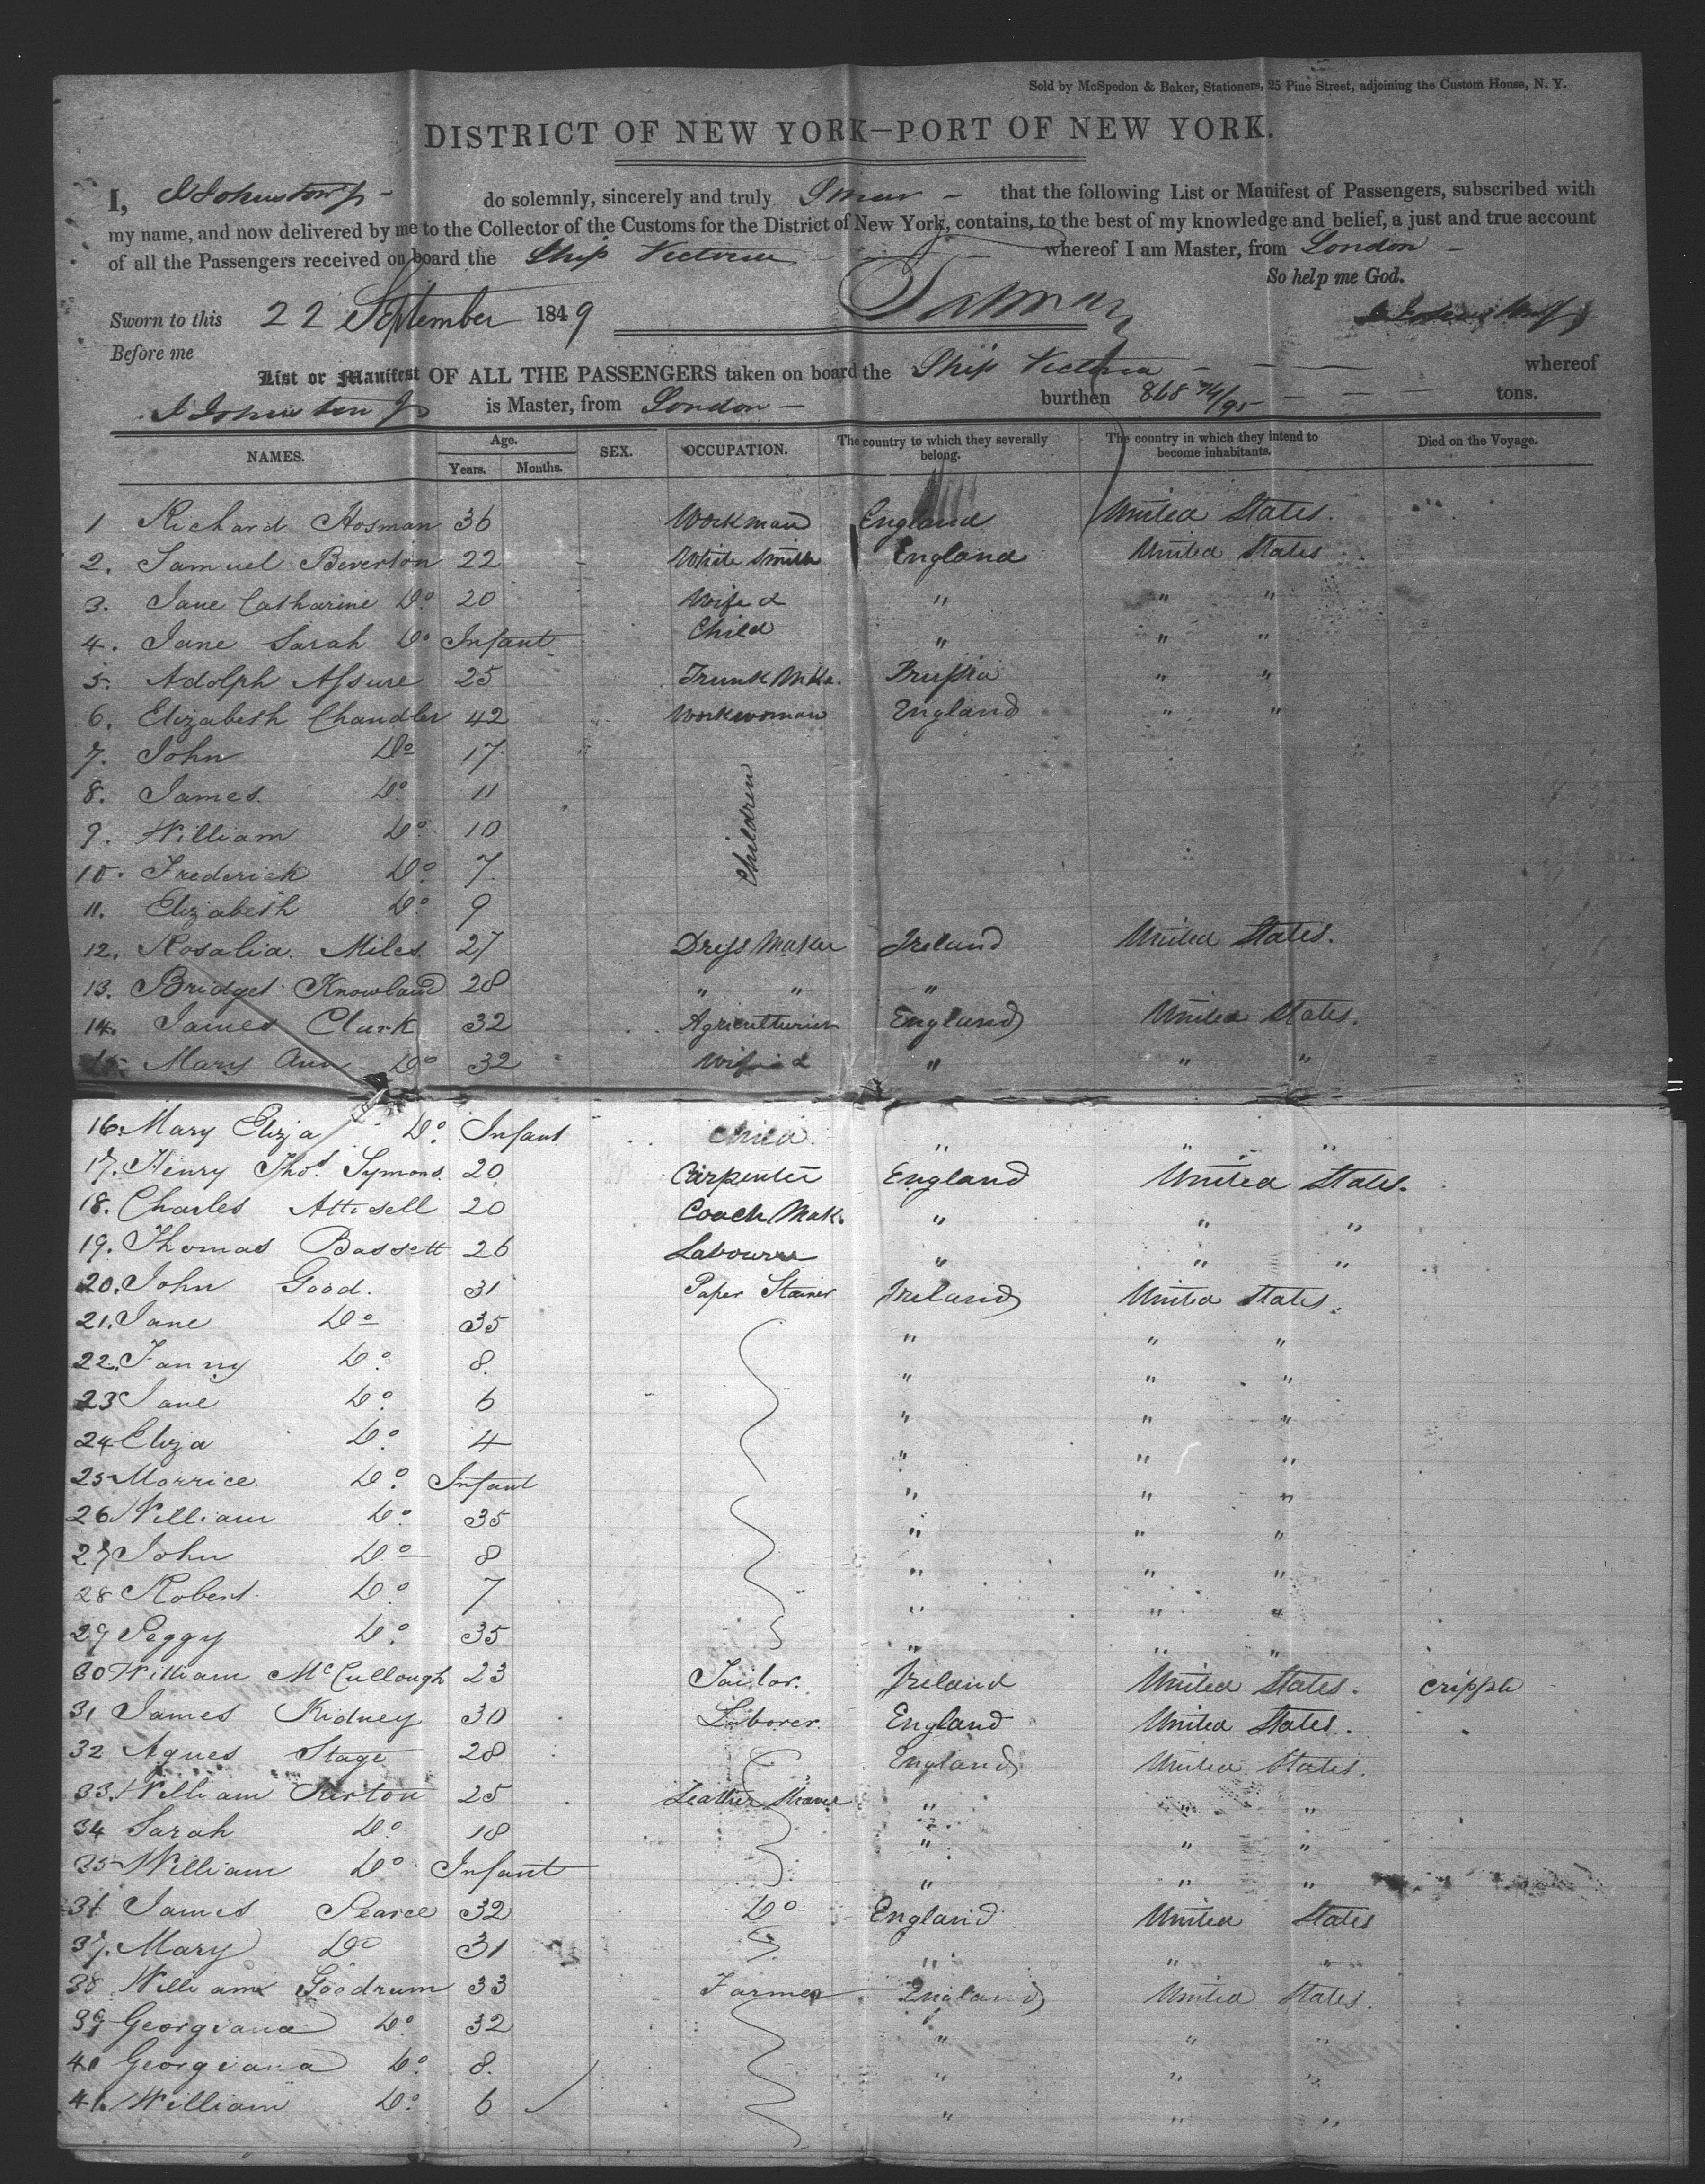 Sold by McSpedon & Baker, Stationers, 25 Pine Street, adjoining the Custom House, N. Y.
DISTRICT OF NEW YORK—PORT OF NEW YORK.
I, J Johnston Jr do solemnly, sincerely and truly Swear that the following List or Manifest of Passengers, subscribed with
my name, and now delivered by me to the Collector of the Customs for the District of New York, contains, to the best of my knowledge and belief, a just and true account
of all the Passengers received on board the Ship Victoria whereof I am Master, from London
So help me God.
Sworn to this 22 September 1849
Before me
List or Manifest OF ALL THE PASSENGERS taken on board the Ship Victoria whereof
J Johnston Jr is Master, from London burthen 868 74/95 tons.
NAMES. Age. Years. Months. SEX. OCCUPATION. The country to which they severally belong. The country in which they intend to become inhabitants. Died on the Voyage.
1 Richard Hosman 36 Workman England United States.
2. Samuel Beverton 22 White Smith England United States
3. Jane Catharine Do 20 Wife & " " "
4. Jane Sarah Do Infant Child " " "
5. Adolph Assure 25 Trunk Mkr. Prussia " "
6. Elizabeth Chandler 42 Workwoman England " "
7. John Do 17
8. James Do 11
9. William Do 10
Children
10. Frederick Do 7
11. Elizabeth Do 9
12. Rosalia Miles 27 Dress Maker Ireland United States.
13. Bridget Knowland 28 " " "
14. James Clark 32 Agriculturist England United States.
15 Mary Ann Do 32 Wife & " " "
16. Mary Eliza Do Infant Child " " "
17. Henry Thos Symons. 20 Carpenter England United States.
18. Charles Attisell 20 Coach Mak. " " "
19. Thomas Bassett 26 Labourer " " "
20. John Good. 31 Paper Stainer Ireland United States.
21. Jane Do 35 " " "
22. Fanny Do 8. " " "
23 Jane Do 6 " " "
24 Eliza Do 4 " " "
25 Morrice Do Infant " " "
26 William Do 35 " " "
27 John Do 8 " " "
28 Robert Do 7 " " "
29 Peggy Do 35 " " "
30 William McCullough 23 Tailor. Ireland United States. Cripple
31 James Kidney 30 Laborer. England United States.
32 Agnes Stage 28 England United States.
33. William Kerton 25 Leather " " "
34 Sarah Do 18 " " "
35 William Do Infant " " "
36 James Pearce 32 Do England United States
37. Mary Do 31 " " "
38 William Goodrum 33 Farmer England United States.
39 Georgiana Do 32 " " "
40 Georgiana Do 8. " " "
41. William Do 6 " " "